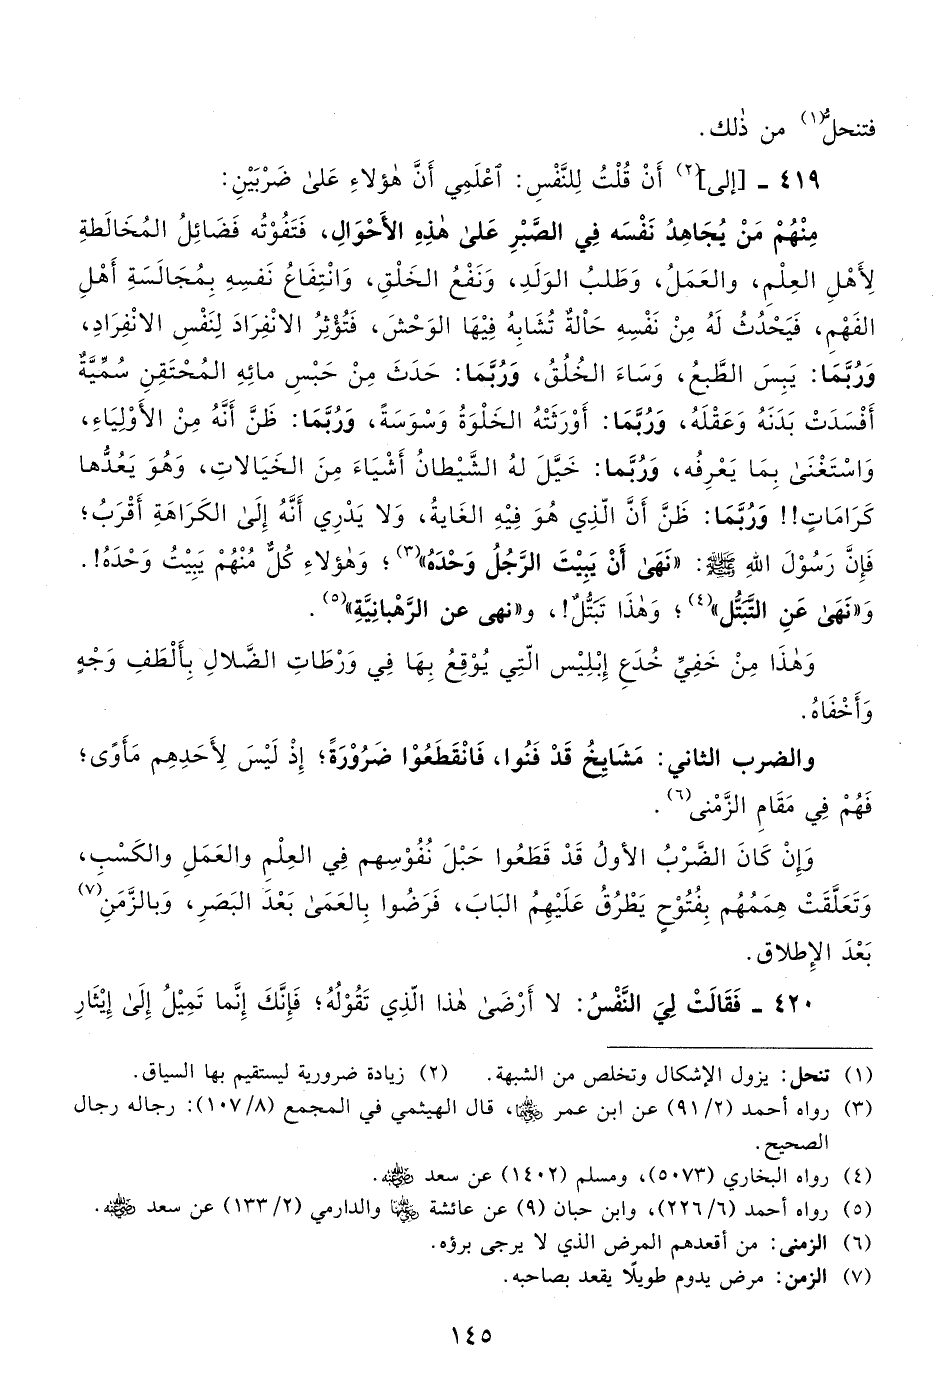 فتنحلُّ(١) من ذٰلك.
٤١٩ ـ [إلى](٢) أَنْ قُلْتُ لِلنَّفْسِ: اَعْلَمِي أَنَّ هٰؤلاءِ عَلىٰ ضَرْبَيْنِ:
مِنْهُمْ مَنْ يُجَاهِدُ نَفْسَه فِي الصَّبْرِ عَلىٰ هٰذِهِ الأَحْوَالِ، فَتَفُوْتُه فَضَائِلُ المُخَالَطةِ
لِأَهْلِ العِلْمِ، والعَمَلُ، وَطَلبُ الوَلَدِ، وَنَفْعُ الخَلْقِ، وَانْتِفَاعُ نَفسِهِ بِمُجَالَسَةِ أَهْلِ
الفَهْمِ، فَيَحْدُثُ لَهُ مِنْ نَفْسِهِ حَالةٌ تُشَابِهُ فِيْهَا الوَحْشَ، فَتُؤْثِرُ الانْفِرَادَ لِنَفْسِ الانْفِرَادِ،
وَرُبَّمَا: يَبِسَ الطَّبعُ، وَسَاءَ الخُلُقُ، وَرُبَّمَا: حَدَثَ مِنْ حَبْسِ مائِهِ المُحْتَقِنِ سُمِّيَّةٌ
أَفْسَدَتْ بَدَنَهُ وَعَقْلَهُ، وَرُبَّمَا: أَوْرَثَتْهُ الخَلْوَةُ وَسْوَسَةً، وَرُبَّمَا: ظَنَّ أَنَّهُ مِنَ الأَوْلِيَاءِ،
وَاسْتَغْنَىٰ بِمَا يَعْرِفُه، وَرُبَّما: خَيَّلَ لهُ الشَّيْطانُ أَشْيَاءَ مِنَ الخَيَالاتِ، وَهُوَ يَعُدُّها
كَرَامَاتٍ!! وَرُبَّمَا: ظَنَّ أَنَّ الّذِي هُوَ فِيْهِ الغَايةُ، وَلا يَدْرِي أَنَّهُ إِلَىٰ الكَرَاهَةِ أَقْرَبُ؛
فَإِنَّ رَسُوْلَ اللهِ ﷺ: «نَهَىٰ أَنْ يَبِيْتَ الرَّجُلُ وَحْدَهُ»(٣)؛ وَهٰؤلاءِ كُلٌّ مُنْهُمْ يَبِيْتُ وَحْدَهُ!.
وَ«نَهَىٰ عَنِ التَّبَتُّل»(٤)؛ وَهٰذَا تَبَتُّلٌ!، و«نهى عن الرَّهْبانِيَّةِ»(٥).
وَهٰذَا مِنْ خَفِيِّ خُدَعِ إِبْلِيْس الّتِي يُوْقِعُ بِهَا فِي وَرْطَاتِ الضَّلالِ بِأَلْطَفِ وَجْهٍ
وَأَخْفَاهُ.
والضرب الثاني: مَشَايِخُ قَدْ فَنُوا، فَانْقَطَعُوْا ضَرُوْرَةً؛ إِذْ لَيْسَ لِأَحَدِهِم مَأوًى؛
فَهُمْ فِي مَقَامِ الزَّمْنى(٦).
وَإِنْ كَانَ الضَّرْبُ الأولُ قَدْ قَطَعُوا حَبْلَ نُفُوْسِهم فِي العِلْمِ والعَمَلِ والكَسْبِ،
وَتَعَلَّقَتْ هِمَمُهُم بِفُتُوْحٍ يَطْرُقُ عَلَيْهِمُ البَابَ، فَرَضُوا بِالعَمَىٰ بَعْدَ البَصَرِ، وَبالزَّمَنِ(٧)
بَعْدَ الإِطلاق.
٤٢٠ ـ فَقَالَتْ لِيَ النَّفْسُ: لا أَرْضَىٰ هٰذا الّذِي تَقُوْلُهُ؛ فَإِنَّكَ إِنَّما تَمِيْلُ إِلَىٰ إِيْثَارِ
(١) تنحل: يزول الإشكال وتخلص من الشبهة. (٢) زيادة ضرورية ليستقيم بها السياق.
(٣) رواه أحمد (٢/ ٩١) عن ابن عمر ﵄، قال الهيثمي في المجمع (٨/ ١٠٧): رجاله رجال
الصحيح.
(٤) رواه البخاري (٥٠٧٣)، ومسلم (١٤٠٢) عن سعد ﵁.
(٥) رواه أحمد (٦/ ٢٢٦)، وابن حبان (٩) عن عائشة ﵂ والدارمي (٢/ ١٣٣) عن سعد ﵁.
(٦) الزمنى: من أقعدهم المرض الذي لا يرجى برؤه.
(٧) الزمن: مرض يدوم طويلًا يقعد بصاحبه.
١٤٥